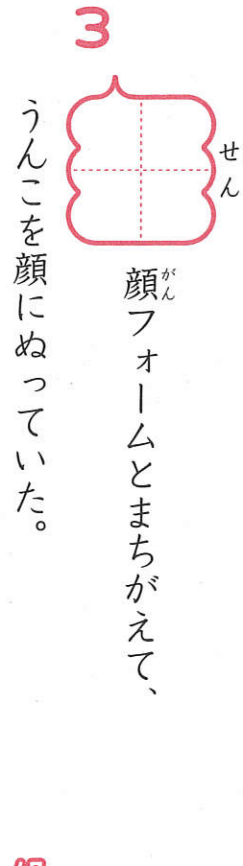 3
せん
顔フォームとまちがえて、
がん
うんこを顔にぬっていた。